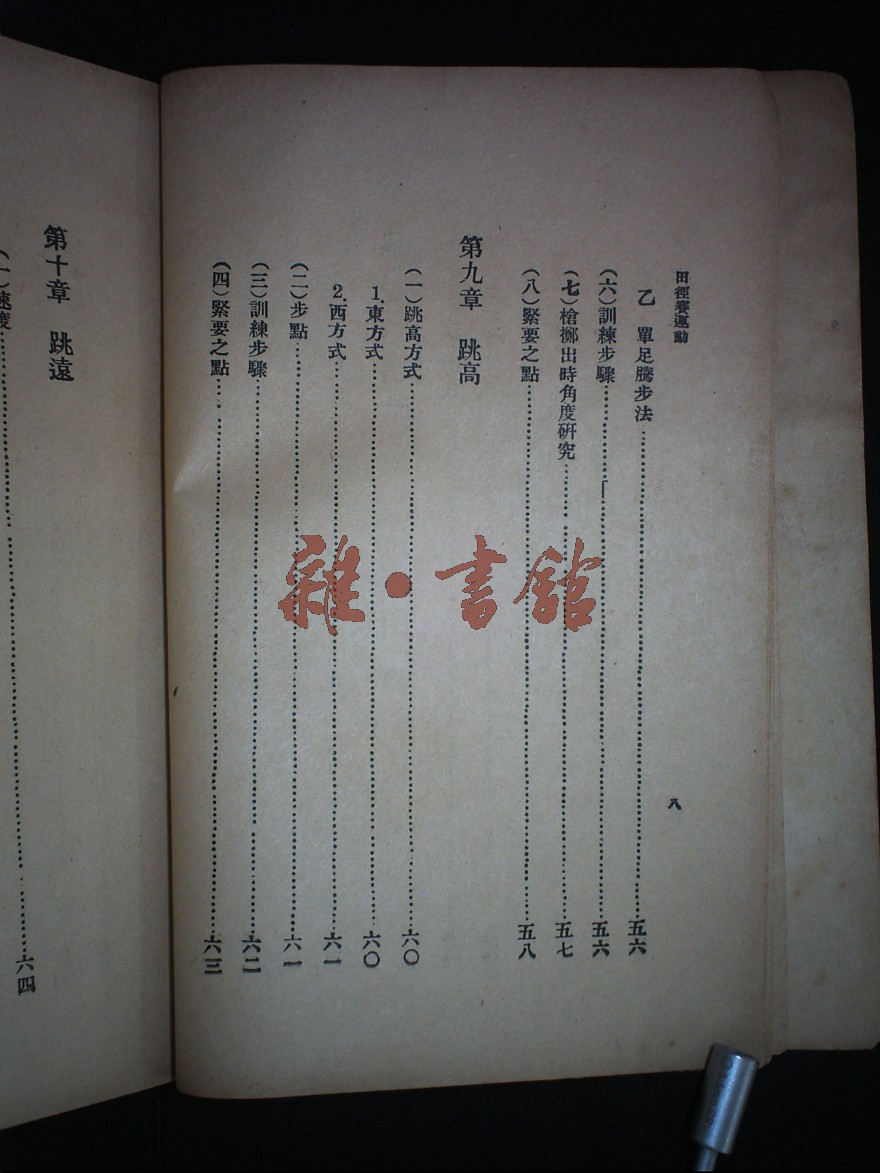 田徑賽運動
八
乙　單足騰步法……五六
（六）訓練步驟……五六
（七）槍擲出時角度研究……五七
（八）緊要之點……五八
第九章　跳高
（一）跳高方式……六〇
1.東方式……六〇
2.西方式……六一
（二）步點……六一
（三）訓練步驟……六二
（四）緊要之點……六三
第十章　跳遠
（一）速度……六四
雜・書館